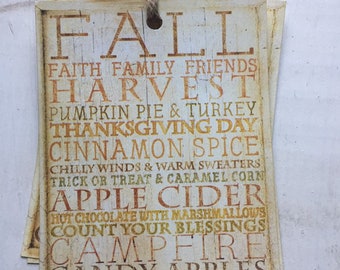 FALL
FAITH FAMILY FRIENDS
HARVEST
PUMPKIN PIE & TURKEY
THANKSGIVING DAY
CINNAMON SPICE
CHILLY WINDS & WARM SWEATERS
TRICK OR TREAT & CARAMEL CORN
APPLE CIDER
HOT CHOCOLATE WITH MARSHMALLOWS
COUNT YOUR BLESSINGS
CAMPFIRE
CANDY APPLES